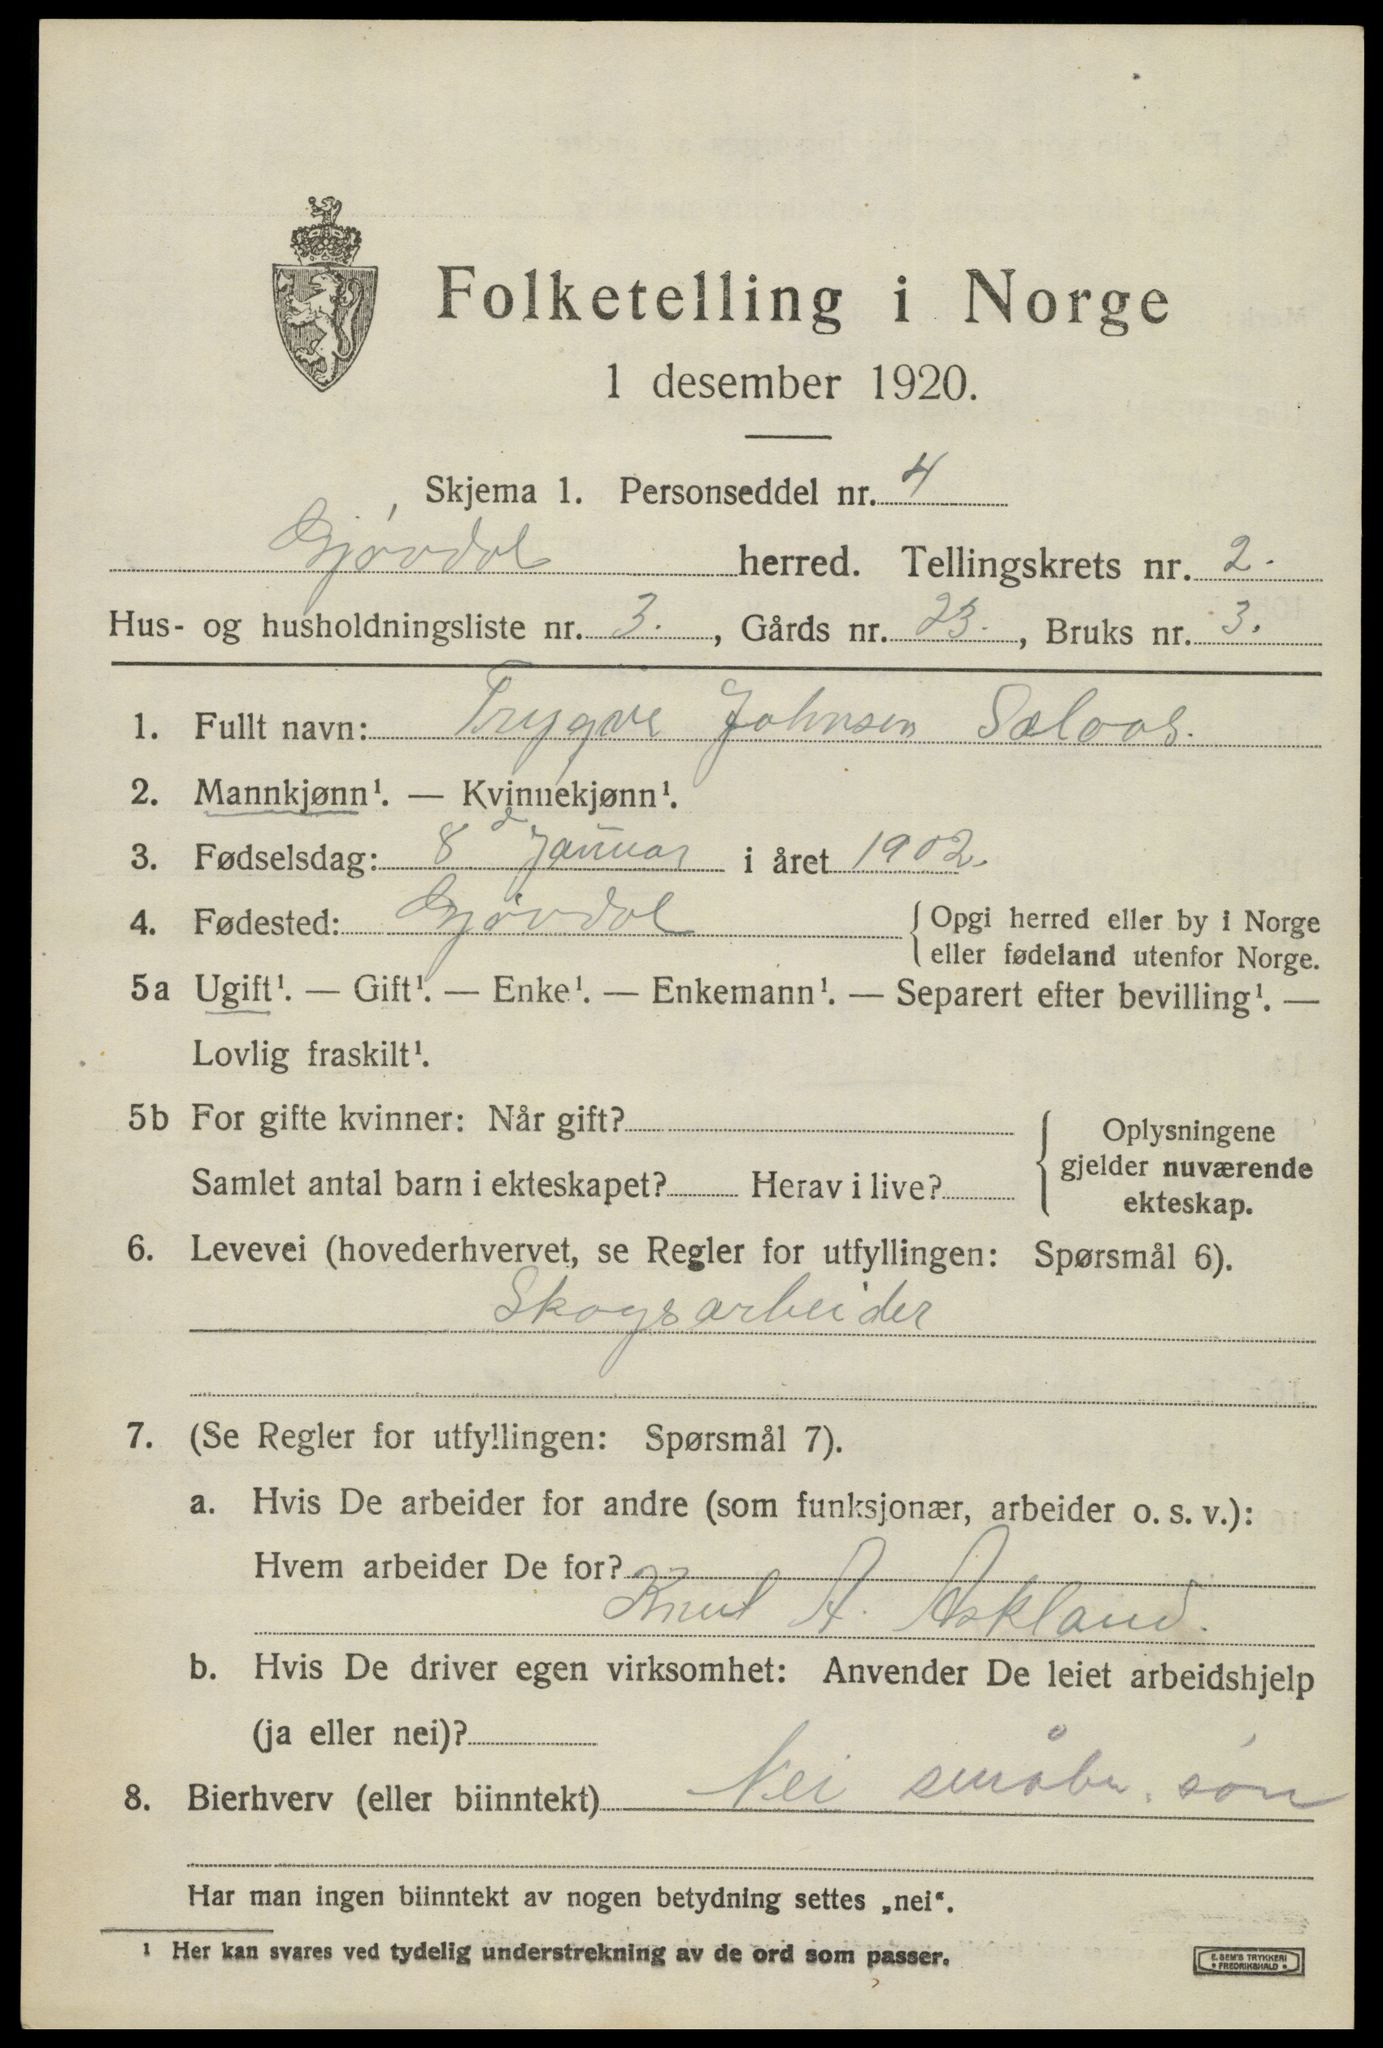 Folketelling i Norge
1 desember 1920.
Skjema 1. Personseddel nr. 4
Gjøvdal herred. Tellingskrets nr. 2.
Hus- og husholdningsliste nr. 3., Gårds nr. 23., Bruks nr. 3.
1. Fullt navn: Trygve Johnsen Sælaas.
2. Mannkjønn¹. — Kvinnekjønn¹.
3. Fødselsdag: 8d Januar i året 1902.
4. Fødested: Gjøvdal { Opgi herred eller by i Norge
eller fødeland utenfor Norge.
5a Ugift¹. — Gift¹. — Enke¹. — Enkemann¹. — Separert efter bevilling¹. —
Lovlig fraskilt¹.
5b For gifte kvinner: Når gift?
Samlet antal barn i ekteskapet? Herav i live?
{ Oplysningene
gjelder nuværende
ekteskap.
6. Levevei (hovederhvervet, se Regler for utfyllingen: Spørsmål 6).
Skogsarbeider
7. (Se Regler for utfyllingen: Spørsmål 7).
a. Hvis De arbeider for andre (som funksjonær, arbeider o. s. v.):
Hvem arbeider De for?
Knut A. Askland.
b. Hvis De driver egen virksomhet: Anvender De leiet arbeidshjelp
(ja eller nei)?
8. Bierhverv (eller biinntekt) Nei småbr. søn
Har man ingen biinntekt av nogen betydning settes „nei“.
¹ Her kan svares ved tydelig understrekning av de ord som passer.
E. SEM'S TRYKKERI
FREDRIKSHALD